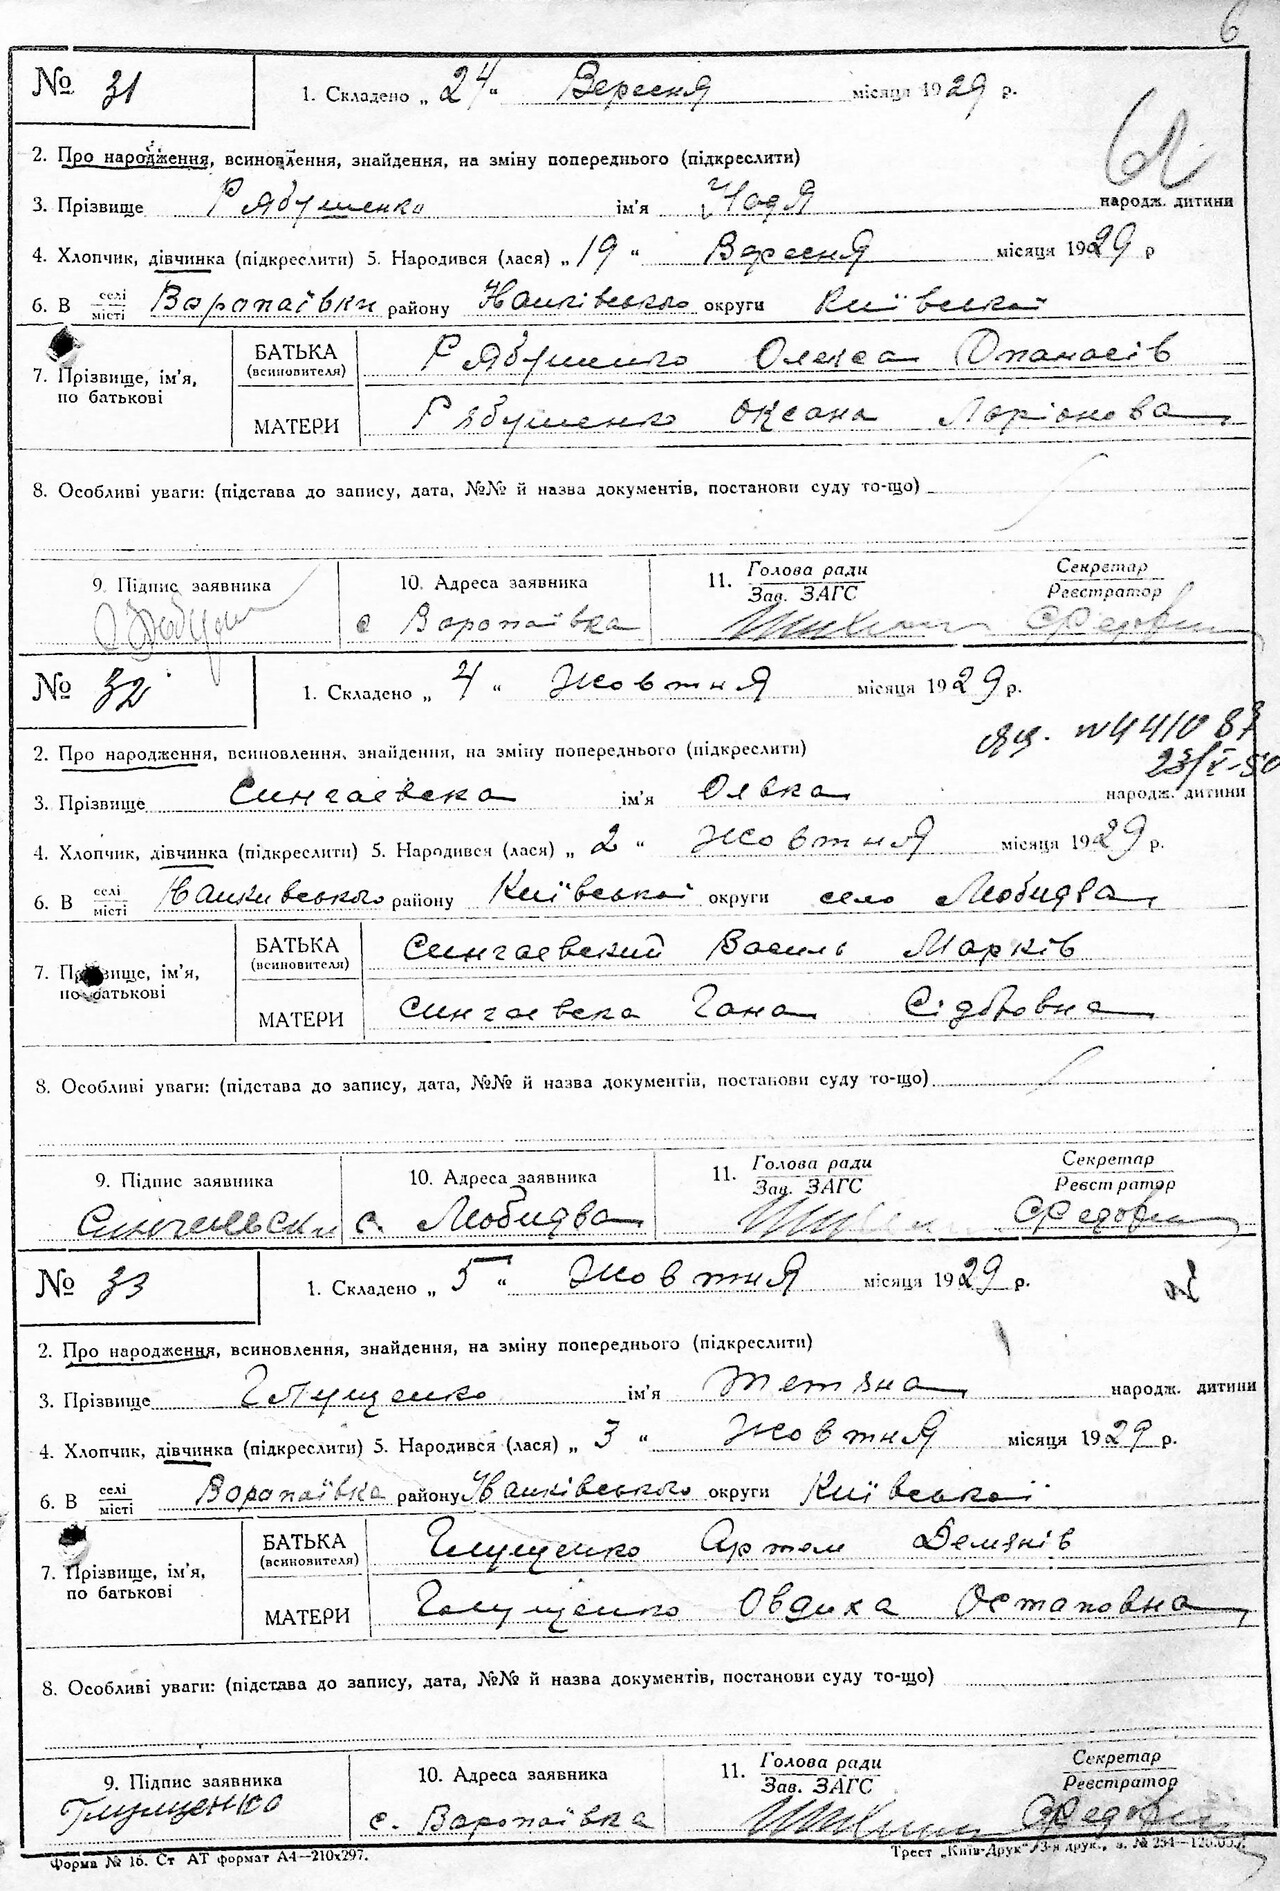 6
№ 31
1. Складено „ 24 “ Вересня місяця 1929 р.
2. Про народження, всиновлення, знайдення, на зміну попереднього (підкреслити)
3. Прізвище Рябушенко ім'я Надя народж. дитини
4. Хлопчик, дівчинка (підкреслити) 5. Народився (лася) „ 19 “ Вересня місяця 1929 р
6. В селі/місті Воропаївки району Іванківського округи Київської
7. Прізвище, ім'я, по батькові
БАТЬКА (всиновителя) Рябушенко Олекса Опанасів
МАТЕРИ Рябушенко Оксана Ларіонова
8. Особливі уваги: (підстава до запису, дата, №№ й назва документів, постанови суду то-що)
9. Підпис заявника 10. Адреса заявника 11. Голова ради / Зав. ЗАГС Секретар / Реєстратор
с Воропаївка
№ 32
1. Складено „ 4 “ Жовтня місяця 1929 р.
2. Про народження, всиновлення, знайдення, на зміну попереднього (підкреслити)
23/V-50
3. Прізвище Сингаевска ім'я Олька народж. дитини
4. Хлопчик, дівчинка (підкреслити) 5. Народився (лася) „ 2 “ Жовтня місяця 1929 р.
6. В селі/місті Іванкивського району Київської округи село Любидва
7. Прізвище, ім'я, по батькові
БАТЬКА (всиновителя) Сингаевский Василь Марків
МАТЕРИ Сингаевска Гана Сідоровна
8. Особливі уваги: (підстава до запису, дата, №№ й назва документів, постанови суду то-що)
9. Підпис заявника 10. Адреса заявника 11. Голова ради / Зав. ЗАГС Секретар / Реєстратор
с. Любидва
№ 33
1. Складено „ 5 “ Жовтня місяця 1929 р.
2. Про народження, всиновлення, знайдення, на зміну попереднього (підкреслити)
3. Прізвище Глущенко ім'я Тетяна народж. дитини
4. Хлопчик, дівчинка (підкреслити) 5. Народився (лася) „ 3 “ Жовтня місяця 1929 р.
6. В селі/місті Воропаївка району Іванківського округи Київської
7. Прізвище, ім'я, по батькові
БАТЬКА (всиновителя) Глущенко Артем Демянів
МАТЕРИ Глущенко Овдиха Остаповна
8. Особливі уваги: (підстава до запису, дата, №№ й назва документів, постанови суду то-що)
9. Підпис заявника 10. Адреса заявника 11. Голова ради / Зав. ЗАГС Секретар / Реєстратор
Глущенко с. Воропаївка
Форма № 16. Ст АТ формат А4—210x297. Трест „Київ-Друк“ 3-я друк., з. № 254—120.000.